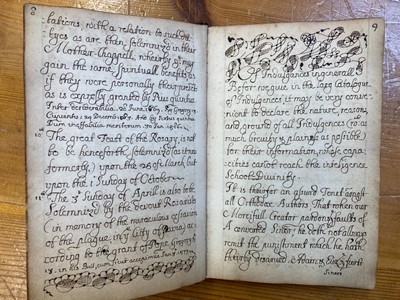 8
tations, with a relation to such Ho=
=lyes as are then solemnized in their
Mother-Chappell, whereby they may
gain the same Spirituall benefits as
if they were personally there present
as is expresly granted by Pius quintus
The great Feast of the Rosary is not
to be henceforth solemnized (as it was
formerly) upon the 25 of March, but
upon the 1 Sunday of October.
The 3 Sunday of April is also to be
Solemnized by the devout Rosarists
in memory of the miraculous cessation
of the plague in the Citty of Pavia, ac=
cording to the grant of Pope Gregory
9
Of Indulgences in generall.
Before we give in the large Catalogue
of Indulgences, it may be very conve=
nient to declare the nature, reason,
and ground of all Indulgences in as
much brevity & plainess as possible
for their information, whose capa=
cities cannot reach the intelligence
Schoole Divinity.
It is therefor an assured Tenet amongst
all Orthodox Authors That when our
Mercifull Creator pardons faults of
A converted Sinner, he doth not always
remit the punishment which he hath
thereby deserved
Sinners